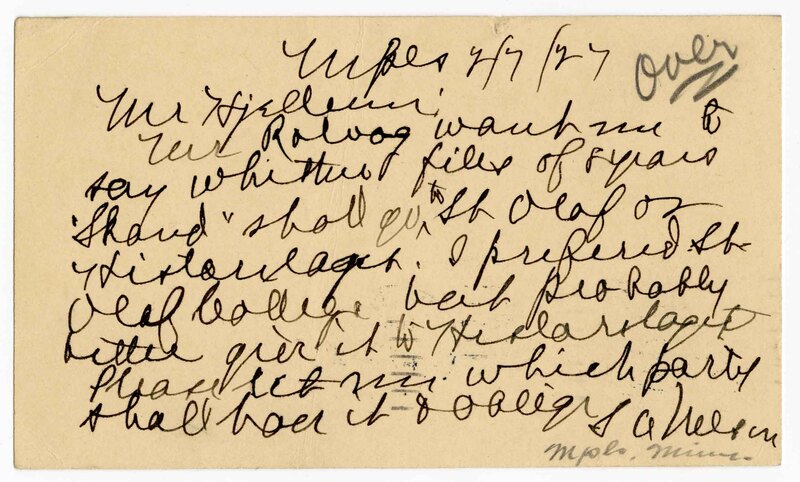 Mpls 2/7/27
Over
Mr Hjellum,
Mr Rolvog want me to
say whether files of 8 years
"Skand" shall go to St Olaf or
Historilaget. I prefered St
Olaf College but probably
better give it to Historslaget
Please let me which party
shall have it & oblige
S A Nelson
Mpls. Minn.